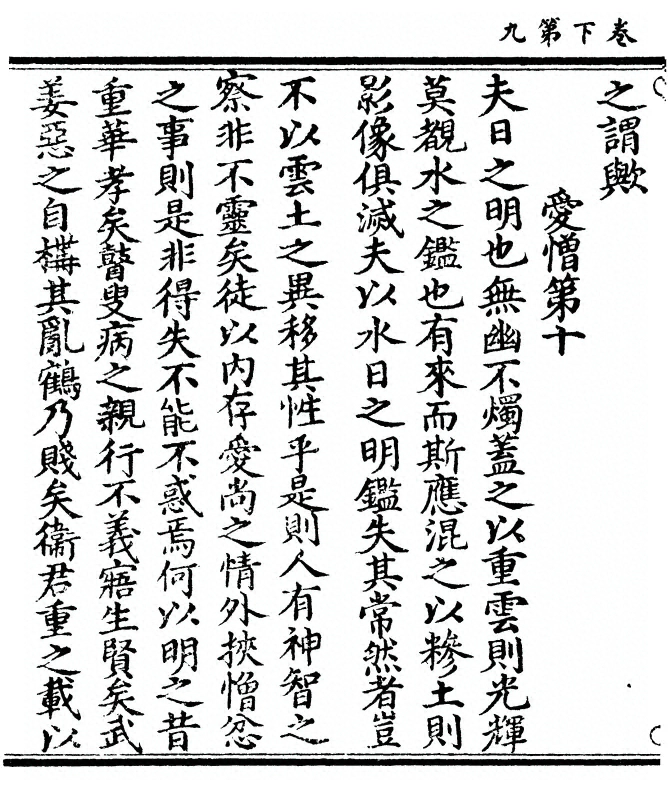 卷下第九
之謂歟
愛憎第十
夫日之明也無幽不燭蓋之以重雲則光輝
莫覩水之鑑也有來而斯應混之以糝土則
影像俱滅夫以水日之明鑑失其常然者豈
不以雲土之異移其性乎是則人有神智之
察非不靈矣徒以內存愛尚之情外挾憎忿
之事則是非得失不能不惑焉何以明之昔
重華孝矣瞽叟病之親行不義寤生賢矣武
姜惡之自構其亂鶴乃賤矣衞君重之載以